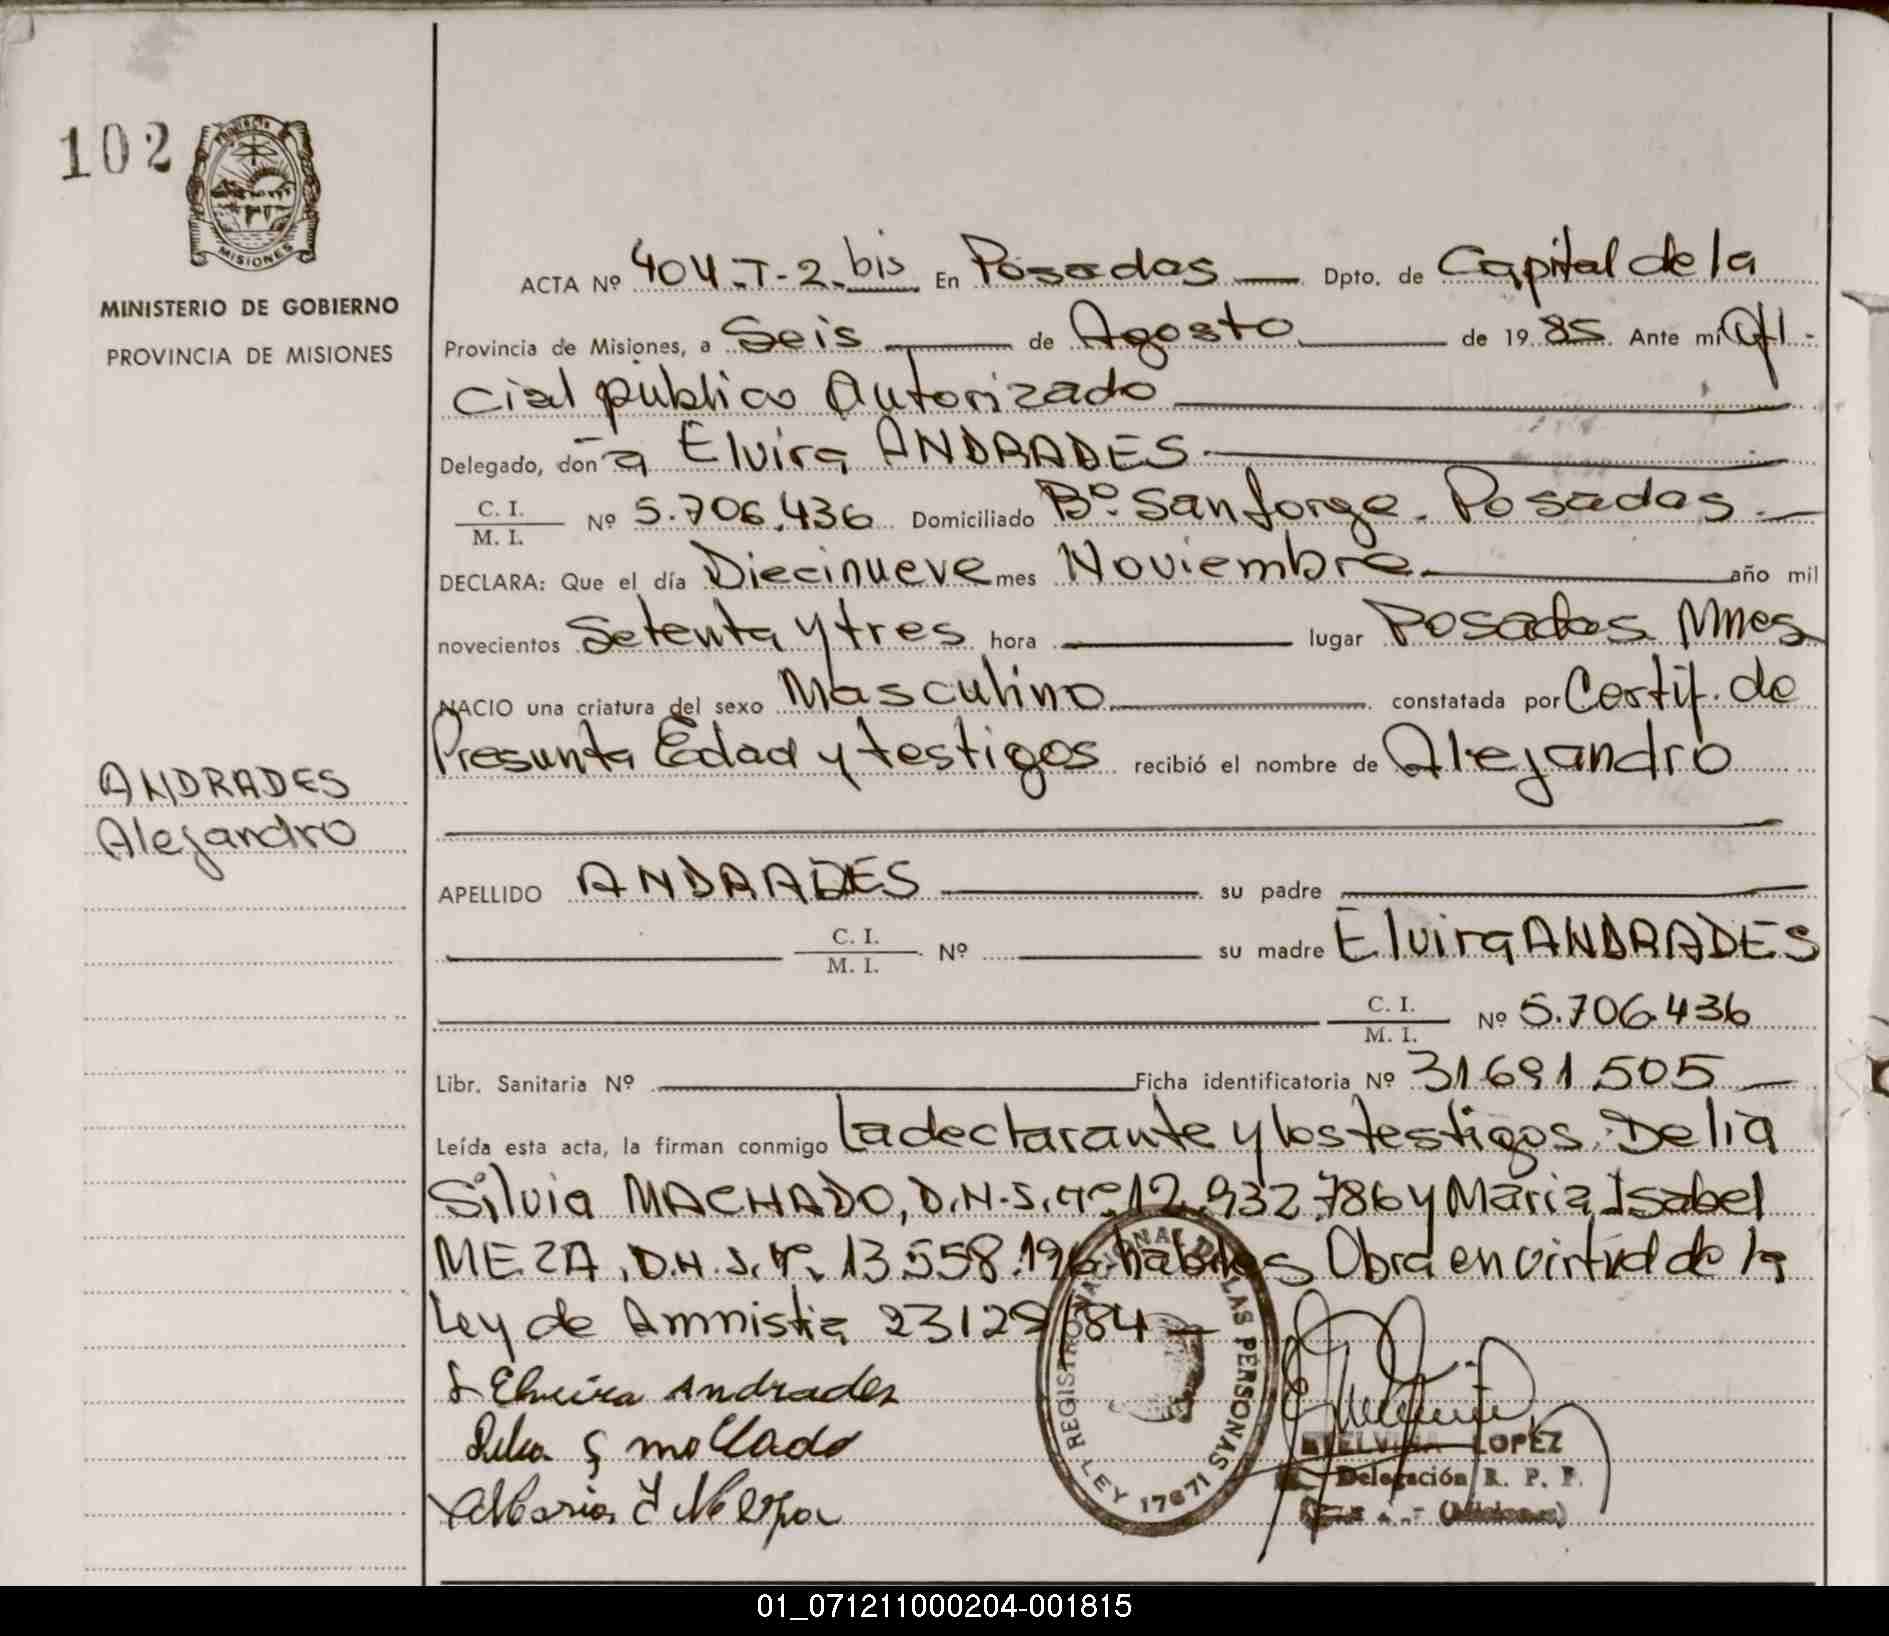 102
PROVINCIA
MISIONES
MINISTERIO DE GOBIERNO
PROVINCIA DE MISIONES
ANDRADES
Alejandro
ACTA Nº 404-T-2-bis En Posadas Dpto. de Capital de la
Provincia de Misiones, a Seis de Agosto de 1985. Ante mi Ofi-
cial público Autorizado
Delegado, doña Elvira ANDRADES
C. I. / M. I. Nº 5.706.436 Domiciliado Bº. San Jorge. Posadas.
DECLARA: Que el día Diecinueve mes Noviembre año mil
novecientos Setenta y tres hora lugar Posadas Mnes
NACIO una criatura del sexo Masculino constatada por Certif. de
Presunta Edad y testigos recibió el nombre de Alejandro
APELLIDO ANDRADES su padre
C. I. / M. I. Nº su madre Elvira ANDRADES
C. I. / M. I. Nº 5.706.436
Libr. Sanitaria Nº Ficha identificatoria Nº 31.691.505
Leída esta acta, la firman conmigo La declarante y los testigos. Delia
Silvia MACHADO, D.N.I. nº 12.932.786 y Maria Isabel
MEZA, D.N.I. nº 13.558.196 habiles Obra en virtud de la
Ley de Amnistia 23129/84
Elveira Andrades
REGISTRO NACIONAL DE LAS PERSONAS
LEY 17671
ELVIRA LOPEZ
Delegación R. P. P.
(Misiones)
01_071211000204-001815